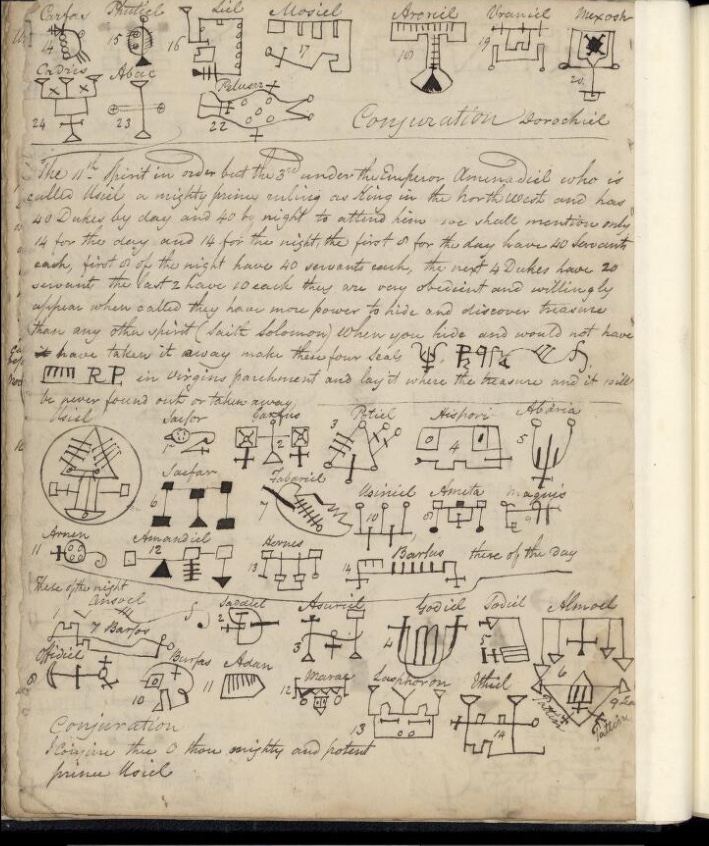 Carfas Phutiel Liel Mosiel Aroziel Vraniel Mexosh
14 15 16 17 18 19 20
Cadries Abac Pelusar
24 23 22
Conjuration Dorochiel
The 11th Spirit in order but the 3rd under the Emperor Amenadiel who is
called Usiel a mighty prince ruling as King in the north West and has
40 Dukes by day and 40 by night to attend him we shall mention only
14 for the day and 14 for the night, the first 8 for the day have 40 Servants
each, first 8 of the night have 40 servants each, the next 4 Dukes have 20
servant the last 2 have 10 each they are very obedient and willingly
appear when called they have more power to hide and discover treasure
than any other spirit (saith Solomon) When you hide and would not have
it have taken it away make these four Seals
R.P. in virgins parchment and lay it where the treasure and it will
be never found out or taken away
Usiel Saefor Garfus Potiel Hispori Abaria
1 2 3 4 5
Saefar Fabariel Usiniel Ameta Maquis
6 7 10
Arnen Amandiel Hernes Barfus these of the day
11 12 13 14
These of the night
Ansoel Saddiel Asuriel Godiel Todiel Almoel
1 2 3 4 5
7 Barfos
6
Offidiel Burfas Adan Marae Lasphoron Ethiel
8 10 11 12 13 14
Pattion
Conjuration
I Conjure thee O thou mighty and potent
prince Usiel